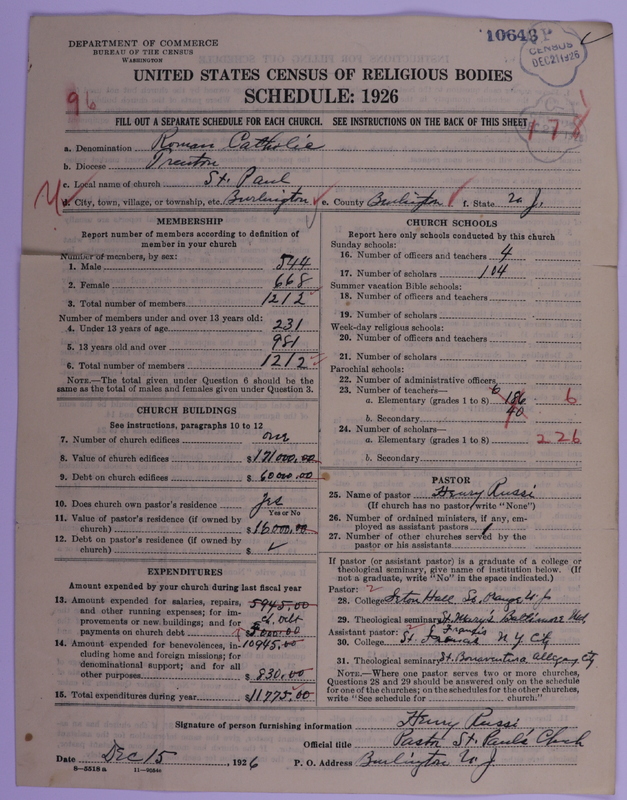 DEPARTMENT OF COMMERCE
BUREAU OF THE CENSUS
WASHINGTON
10643 P
CENSUS
DEC 21 1926
UNITED STATES CENSUS OF RELIGIOUS BODIES
SCHEDULE: 1926
96
FILL OUT A SEPARATE SCHEDULE FOR EACH CHURCH. SEE INSTRUCTIONS ON THE BACK OF THIS SHEET
178
a. Denomination Roman Catholic
b. Diocese Trenton
c. Local name of church St. Paul
d. City, town, village, or township, etc. Burlington e. County Burlington f. State N. J.
MEMBERSHIP
Report number of members according to definition of member in your church
Number of members, by sex:
1. Male 544
2. Female 668
3. Total number of members 1212
Number of members under and over 13 years old:
4. Under 13 years of age 231
5. 13 years old and over 981
6. Total number of members 1212
NOTE.—The total given under Question 6 should be the same as the total of males and females given under Question 3.
CHURCH BUILDINGS
See instructions, paragraphs 10 to 12
7. Number of church edifices one
8. Value of church edifices $171000.00
9. Debt on church edifices $60000.00
10. Does church own pastor's residence yes
Yes or No
11. Value of pastor's residence (if owned by church) $16000.00
12. Debt on pastor's residence (if owned by church) $ ✓
EXPENDITURES
Amount expended by your church during last fiscal year
13. Amount expended for salaries, repairs, and other running expenses; for improvements or new buildings; and for payments on church debt 5945.00
ch. debt
5000.00
14. Amount expended for benevolences, including home and foreign missions; for denominational support; and for all other purposes 10945.00
$830.00
15. Total expenditures during year $11775.00
CHURCH SCHOOLS
Report here only schools conducted by this church
Sunday schools:
16. Number of officers and teachers 4
17. Number of scholars 104
Summer vacation Bible schools:
18. Number of officers and teachers
19. Number of scholars
Week-day religious schools:
20. Number of officers and teachers
21. Number of scholars
Parochial schools:
22. Number of administrative officers
23. Number of teachers— 6
a. Elementary (grades 1 to 8) 186 6
b. Secondary 40
24. Number of scholars—
a. Elementary (grades 1 to 8) 226
b. Secondary
PASTOR
25. Name of pastor Henry Russi
(If church has no pastor write "None")
26. Number of ordained ministers, if any, employed as assistant pastors 1
27. Number of other churches served by the pastor or his assistants
If pastor (or assistant pastor) is a graduate of a college or theological seminary, give name of institution below. (If not a graduate, write "No" in the space indicated.)
Pastor:
28. College Seton Hall So. Orange N J
29. Theological seminary St. Mary's Baltimore Md.
Assistant pastor:
30. College St. Francis N Y City
31. Theological seminary St. Bonaventure Allegany
NOTE.—Where one pastor serves two or more churches, Questions 28 and 29 should be answered only on the schedule for one of the churches; on the schedules for the other churches, write "See schedule for church."
Signature of person furnishing information Henry Russi
Official title Pastor St. Paul's Church
Date Dec 15, 1926 P. O. Address Burlington N. J.
8—5518 a 11—9564c